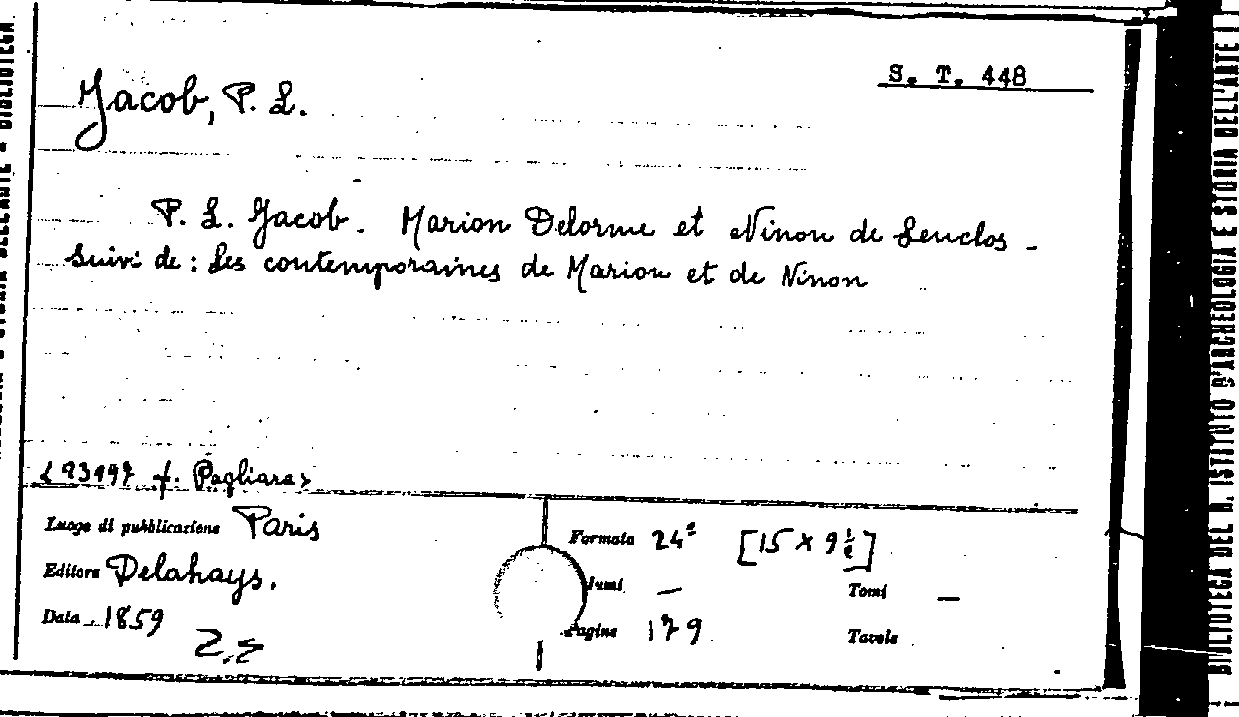 S. T. 448
Jacob, P. L.
P. L. Jacob. Marion Delorme et Ninon de Lenclos -
Suivi de : Les contemporaines de Marion et de Ninon
<93497 f. Pagliara>
Luogo di pubblicazione Paris
Editore Delahays.
Data 1859
Formato 24° [15 x 9 1/2]
Volumi — Tomi —
Pagine 179 Tavole
BIBLIOTECA DEL R. ISTITUTO D'ARCHEOLOGIA E STORIA DELL'ARTE